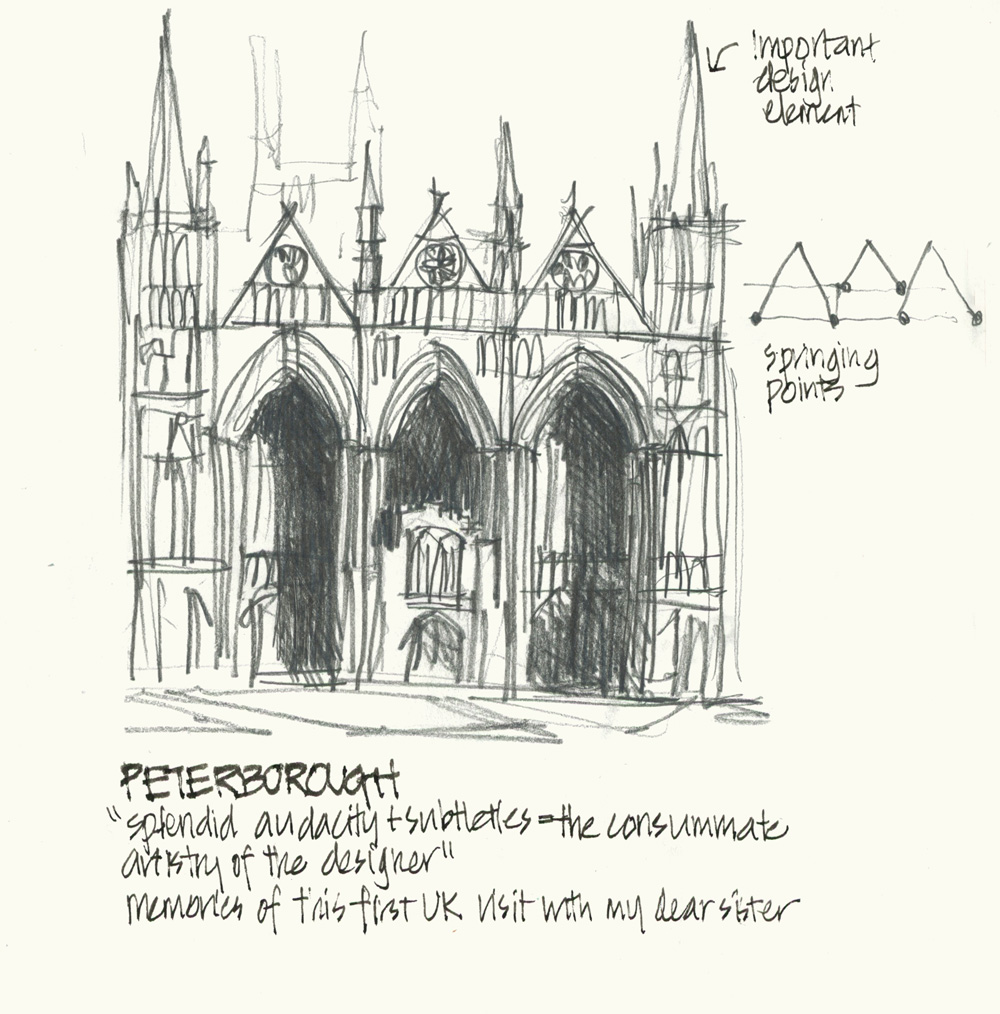 important
design
element
springing
points
PETERBOROUGH
"splendid audacity + subtleties = the consummate
artistry of the designer"
memories of this first UK visit with my dear sister